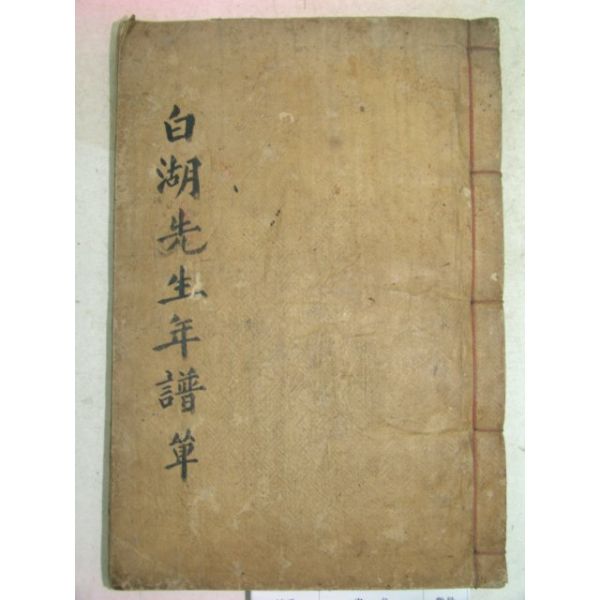 白湖先生年譜單